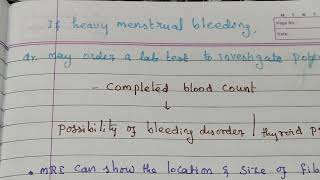 If heavy menstrual bleeding,
dr. may order a lab test to investigate
- Completed blood count
↓
possibility of bleeding disorder | thyroid
• MRI can show the location & size of